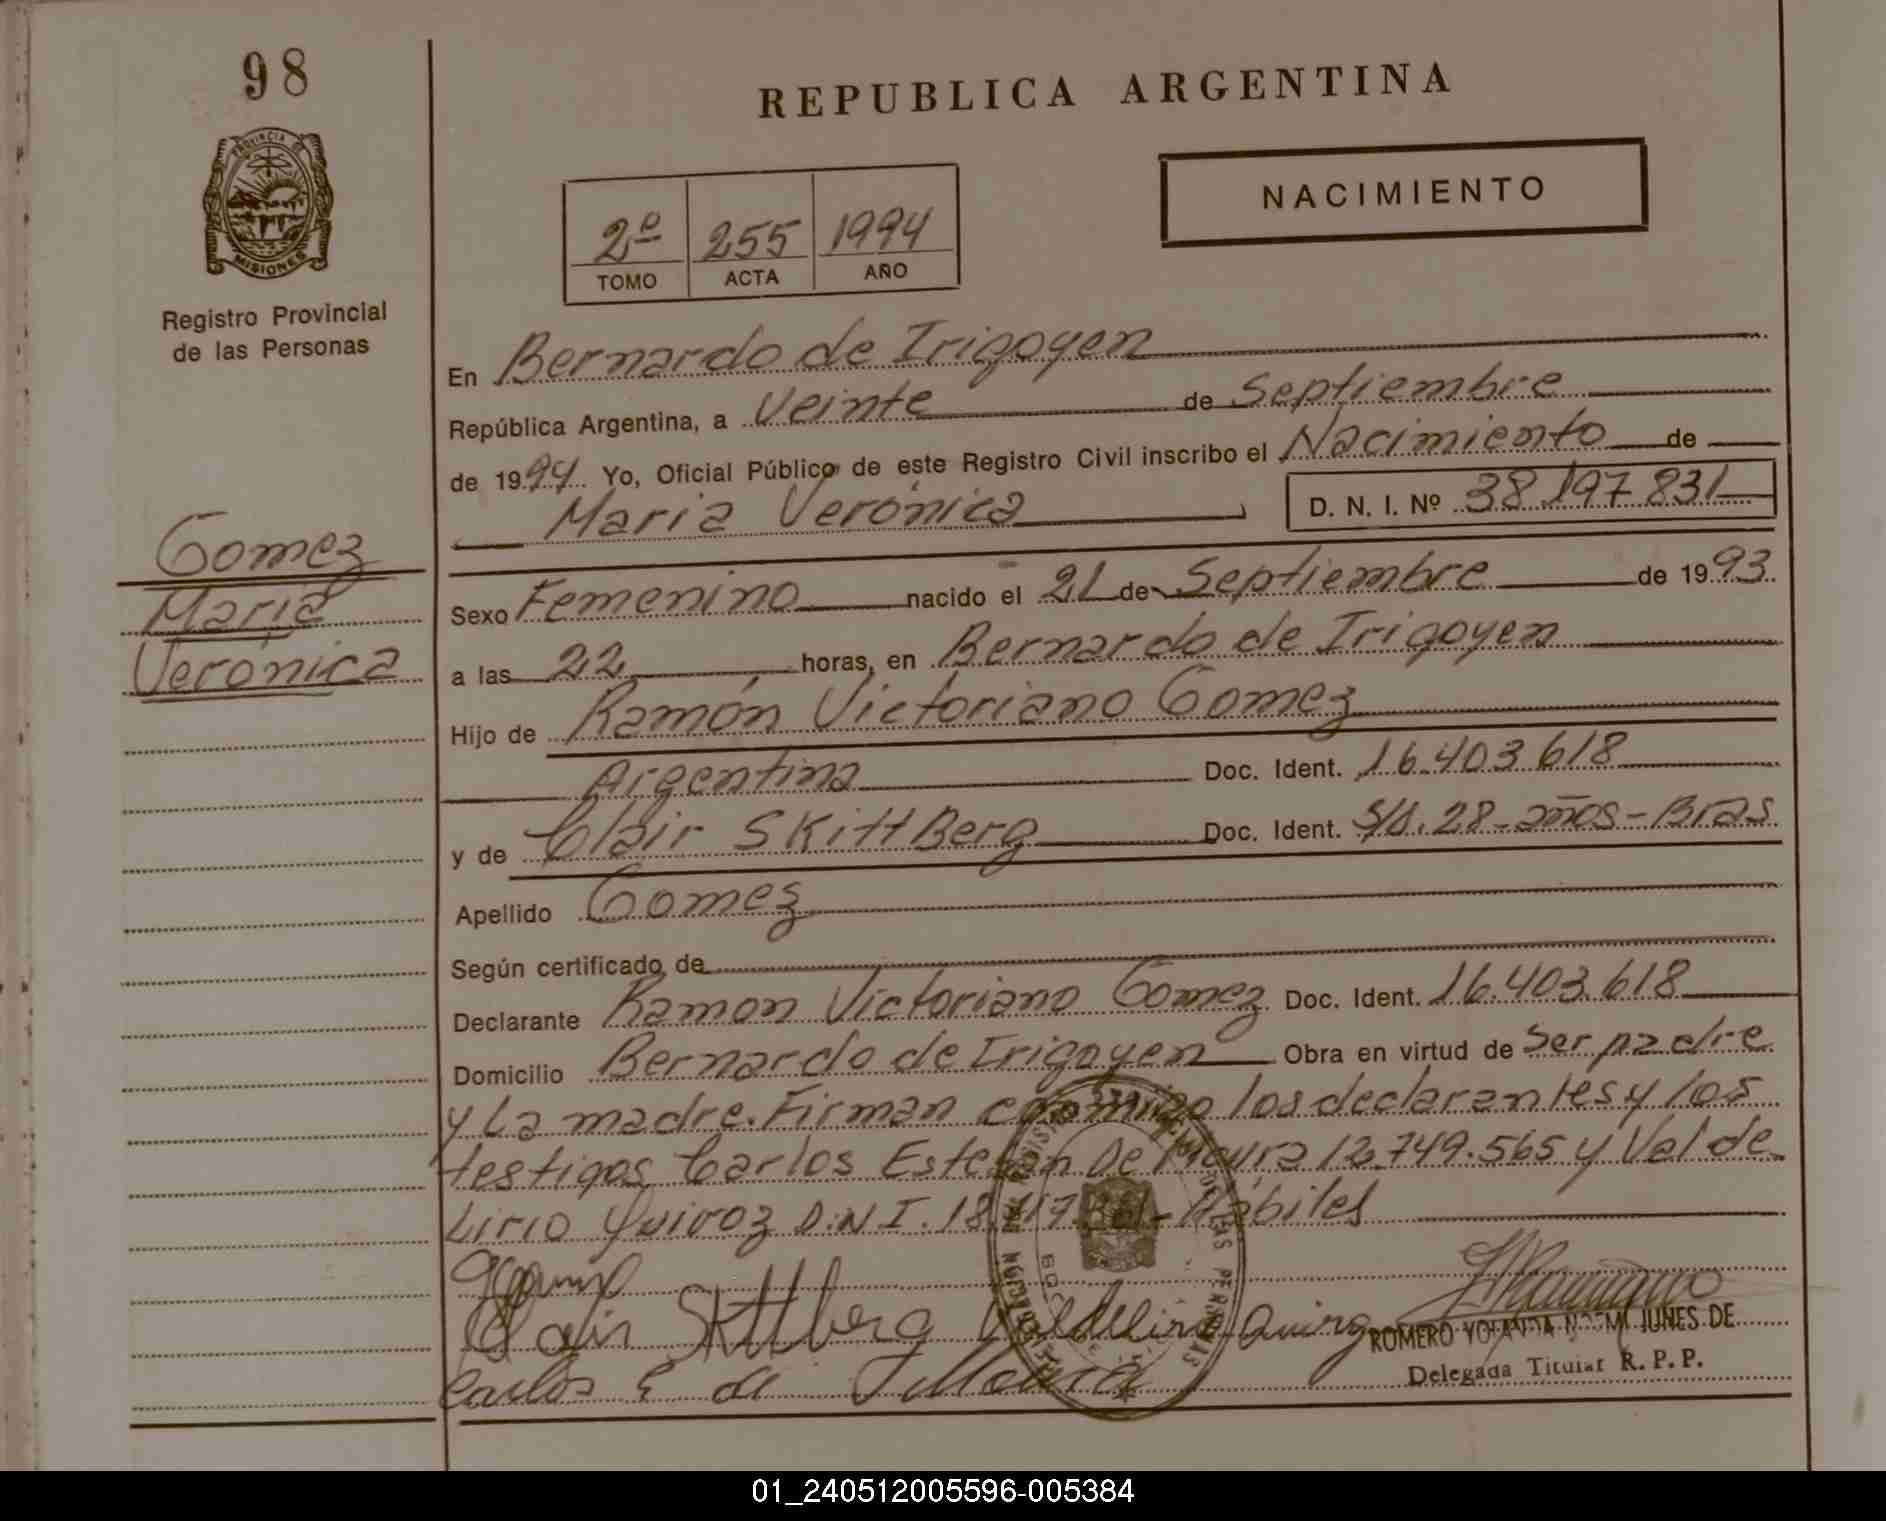 98
REPUBLICA ARGENTINA
PROVINCIA DE
MISIONES
NACIMIENTO
2º 255 1994
TOMO ACTA AÑO
Registro Provincial
de las Personas
En Bernardo de Irigoyen
República Argentina, a Veinte de Septiembre
de 1994 Yo, Oficial Público de este Registro Civil inscribo el Nacimiento de
Maria Verónica D. N. I. Nº 38.197.831
Gomez
Maria
Verónica
Sexo Femenino nacido el 21 de Septiembre de 1993
a las 22 horas, en Bernardo de Irigoyen
Hijo de Ramón Victoriano Gomez
Argentina Doc. Ident. 16.403.618
y de Clair SKittBerg Doc. Ident. S/D. 28-años-Bras
Apellido Gomez
Según certificado de
Declarante Ramon Victoriano Gomez Doc. Ident. 16.403.618
Domicilio Bernardo de Irigoyen Obra en virtud de Ser padre
y La madre. Firman conmigo los declarantes y los
testigos Carlos Esteban De Moura 12.749.565 y Valde
Lirio Quiroz D.N.I. 18.117. - Hábiles
Clair Skittberg Valdelirio Quiroz
ROMERO YOLANDA NOEMI JUNES DE
Carlos E de Moura
Delegada Titular R. P. P.
01_240512005596-005384